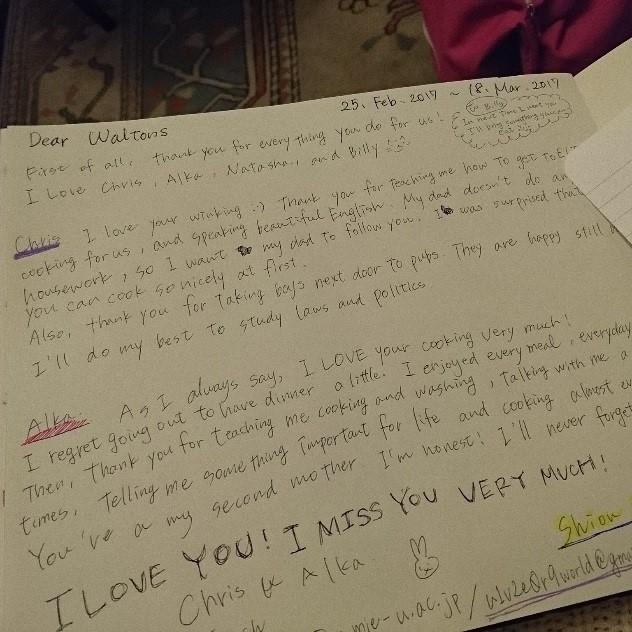 25. Feb. 2017 ~ 18. Mar. 2017
Dear Waltons
To Billy
In next time I meet you
I'll bring something you can
eat
First of all, thank you for everything you do for us!
I Love Chris, Alka, Natasha, and Billy
Chris I love your winking :) Thank you for Teaching me how to get to
cooking for us, and speaking beautiful English. My dad doesn't do any
housework, so I want my dad to follow you. I was surprised that
you can cook so nicely at first.
Also, thank you for Taking boys next door to pubs. They are happy still
I'll do my best to study laws and politics.
Alka As I always say, I LOVE your cooking very much!
I regret going out to have dinner a little. I enjoyed every meal, everyday
Then, Thank you for Teaching me cooking and washing, Talking with me a
times, Telling me something important for life and cooking almost
You're a my second mother I'm honest! I'll never forget
I LOVE YOU! I MISS YOU VERY MUCH!
Chris & Alka
Shiou
mie-u.ac.jp /